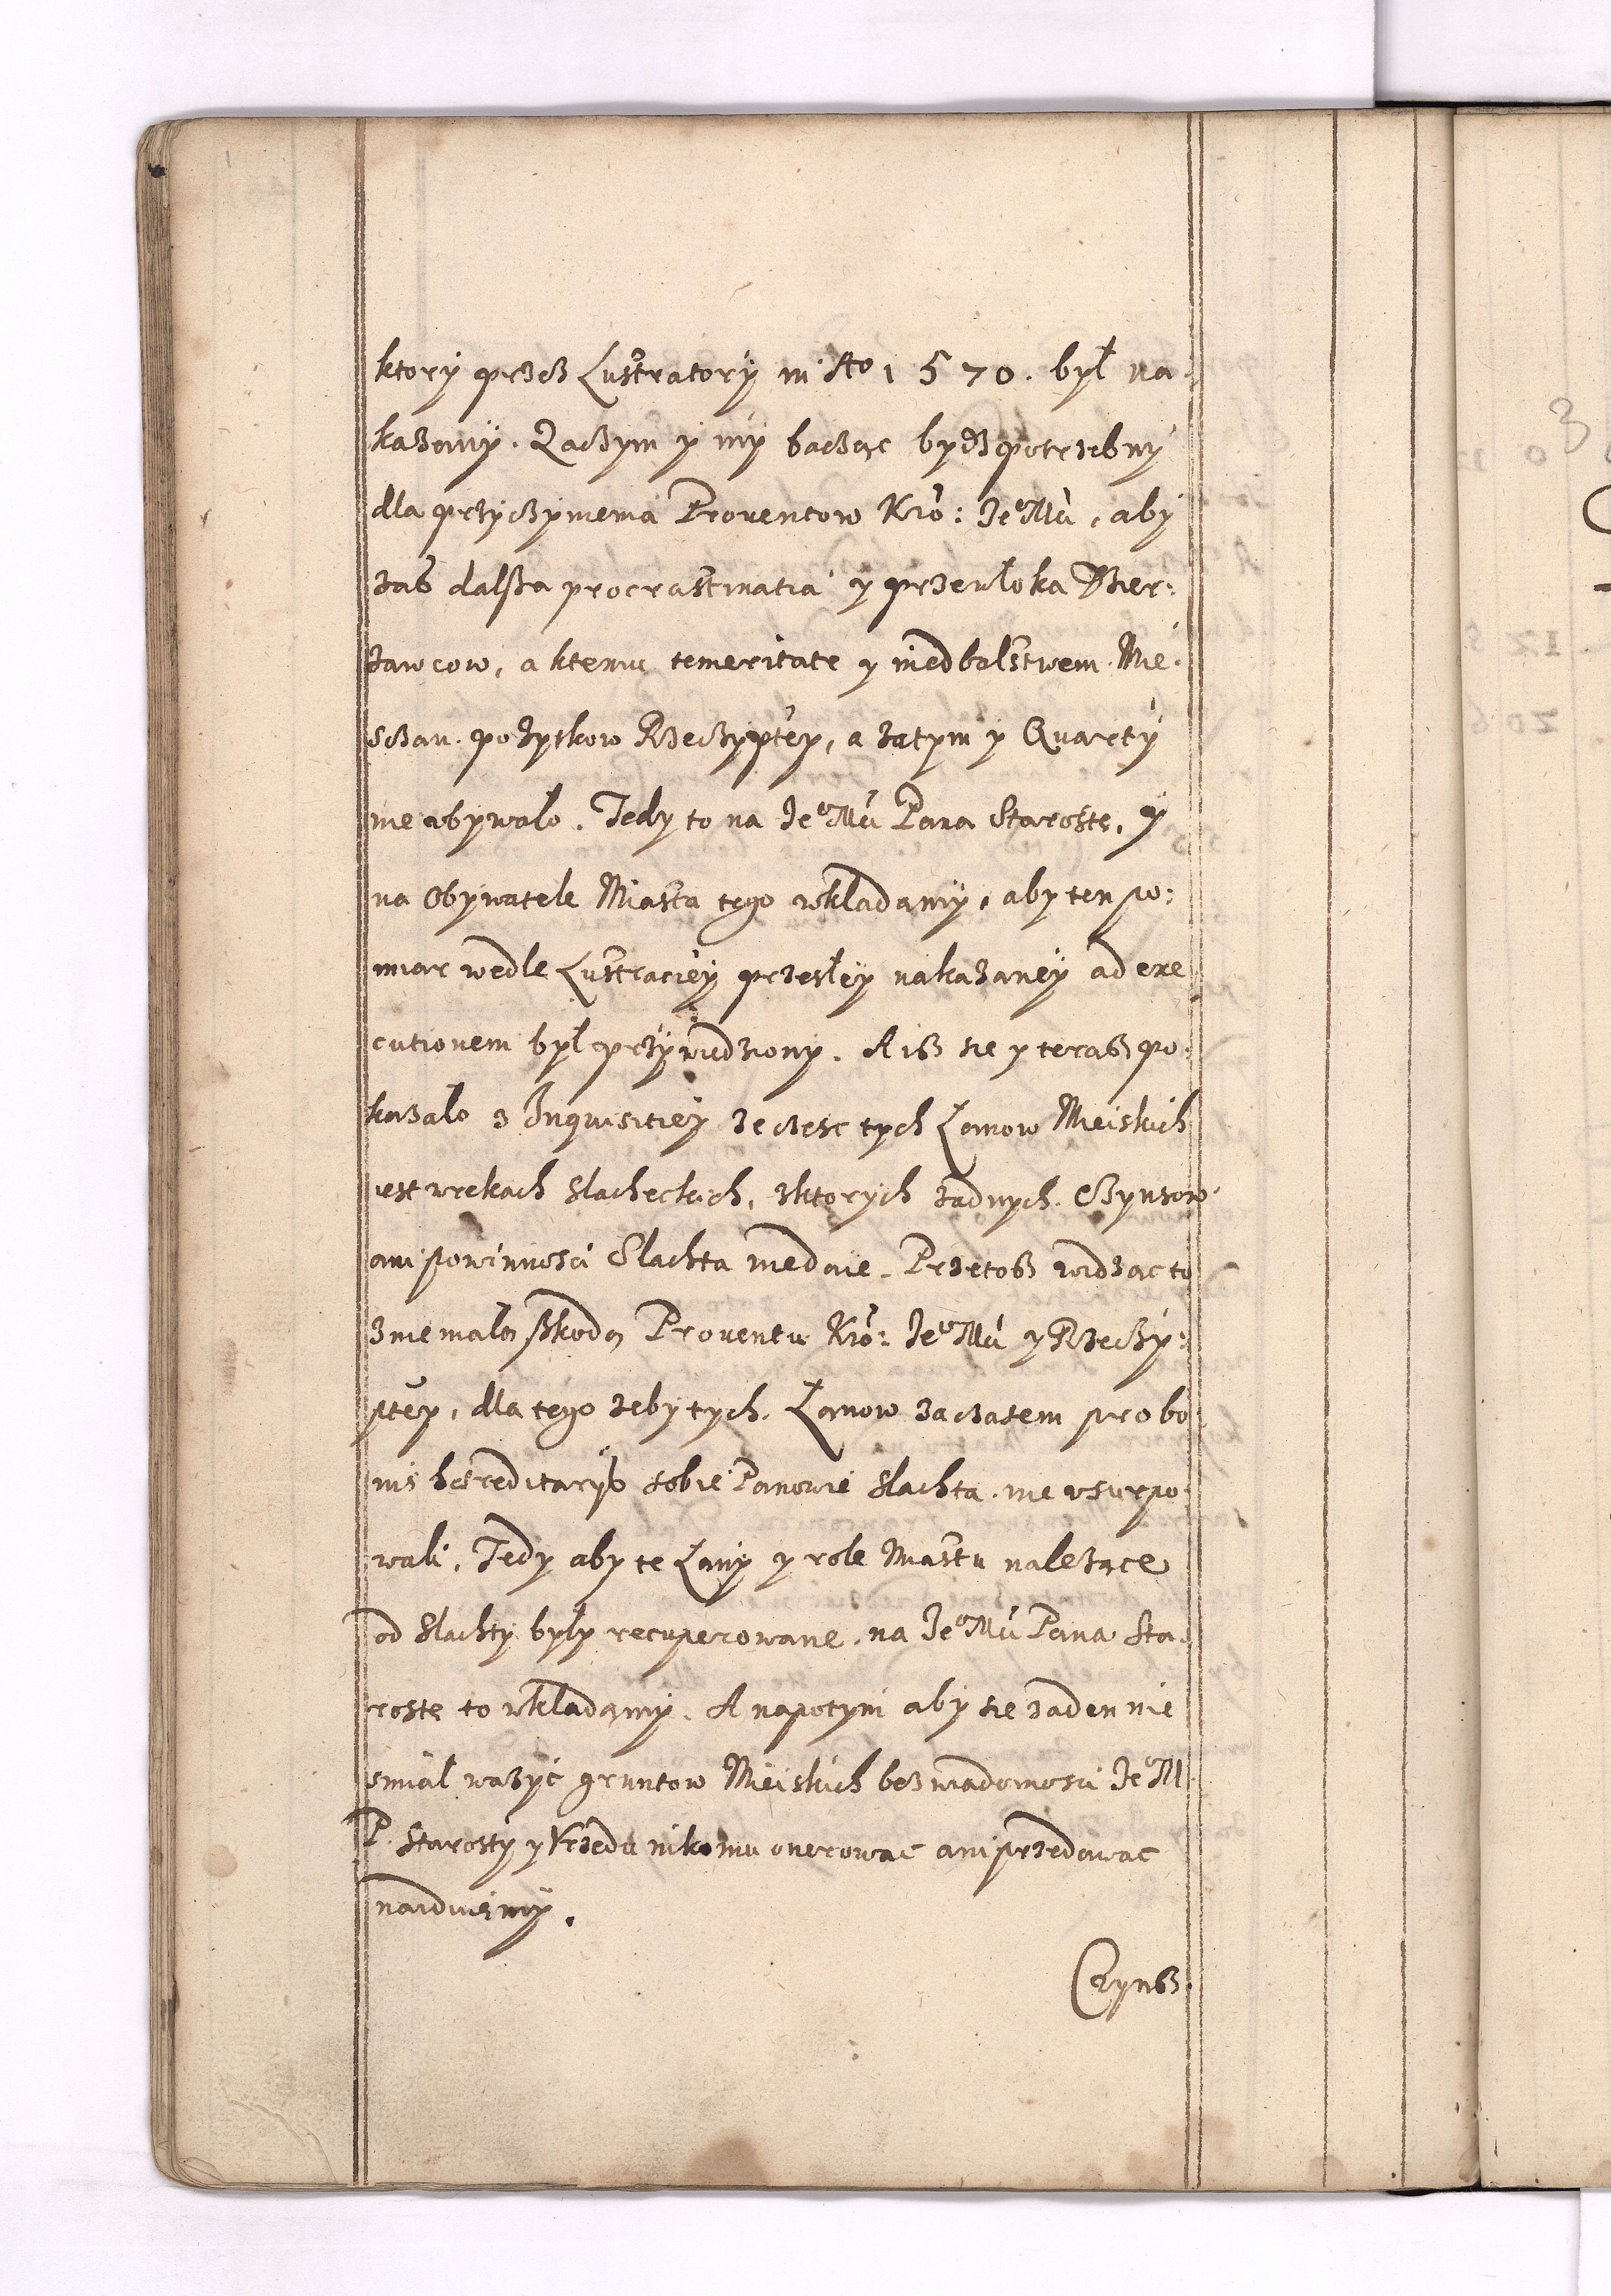 ktory przez Lustratory in Ao 1570. był na
kazany. Zaczym y my bacząc bydz potrzebny
dla przyczynienia Prouentow Kro: Jeo Mći, aby
zas dalsza procrastinatia y przewłoka Dzier:
zawcow, a ktemu temeritate y niedbalstwem Mie:
sczan pozytkow Rzeczyptey, a zatym y Quarty
nie ubywało. Tedy to na Jeo Mći Pana Staroste, y
na Obywatele Miasta tego wkladamy, aby ten po:
miar wedle Lustraciey przesłey nakazaney ad exe
cutionem był przywiedziony. A isz sie y terasz po
kazało z Inquisitiey ze czesc tych Łanow Mieiskich
iest wrekach slacheckich, zktorych zadnych Czynszow
ani powinnosci Slachta niedaie. Przetosz widząc to
zniemałą szkodą Prouentu Kro: Jeo Mći y Rzeczy:
ptey, dla tego zeby tych Łanow zaczasem pro bo
nis hæreditarijs sobie Panowie Slachta nie vsurpo
wali. Tedy aby te Łany y role Miastu nalezące
od Slachty były recuperowane, na Jeo Mći Pana Sta
roste to wkladamy. A napotym aby sie zaden nie
smiał wazyć gruntow Mieiskich bez wiadomosci Jeo M
P. Starosty y Vrzedu nikomu onerowac ani przedawac
naiduiemy.
Czynsz.